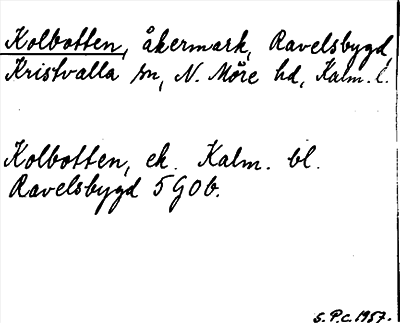 Kolbotten, åkermark, Ravelsbygd,
Kristvalla sn, N. Möre hd, Kalm. l.
Kolbotten, ek. Kalm. bl.
Ravelsbygd 5 G 0 b.
S.P.C. 1957.